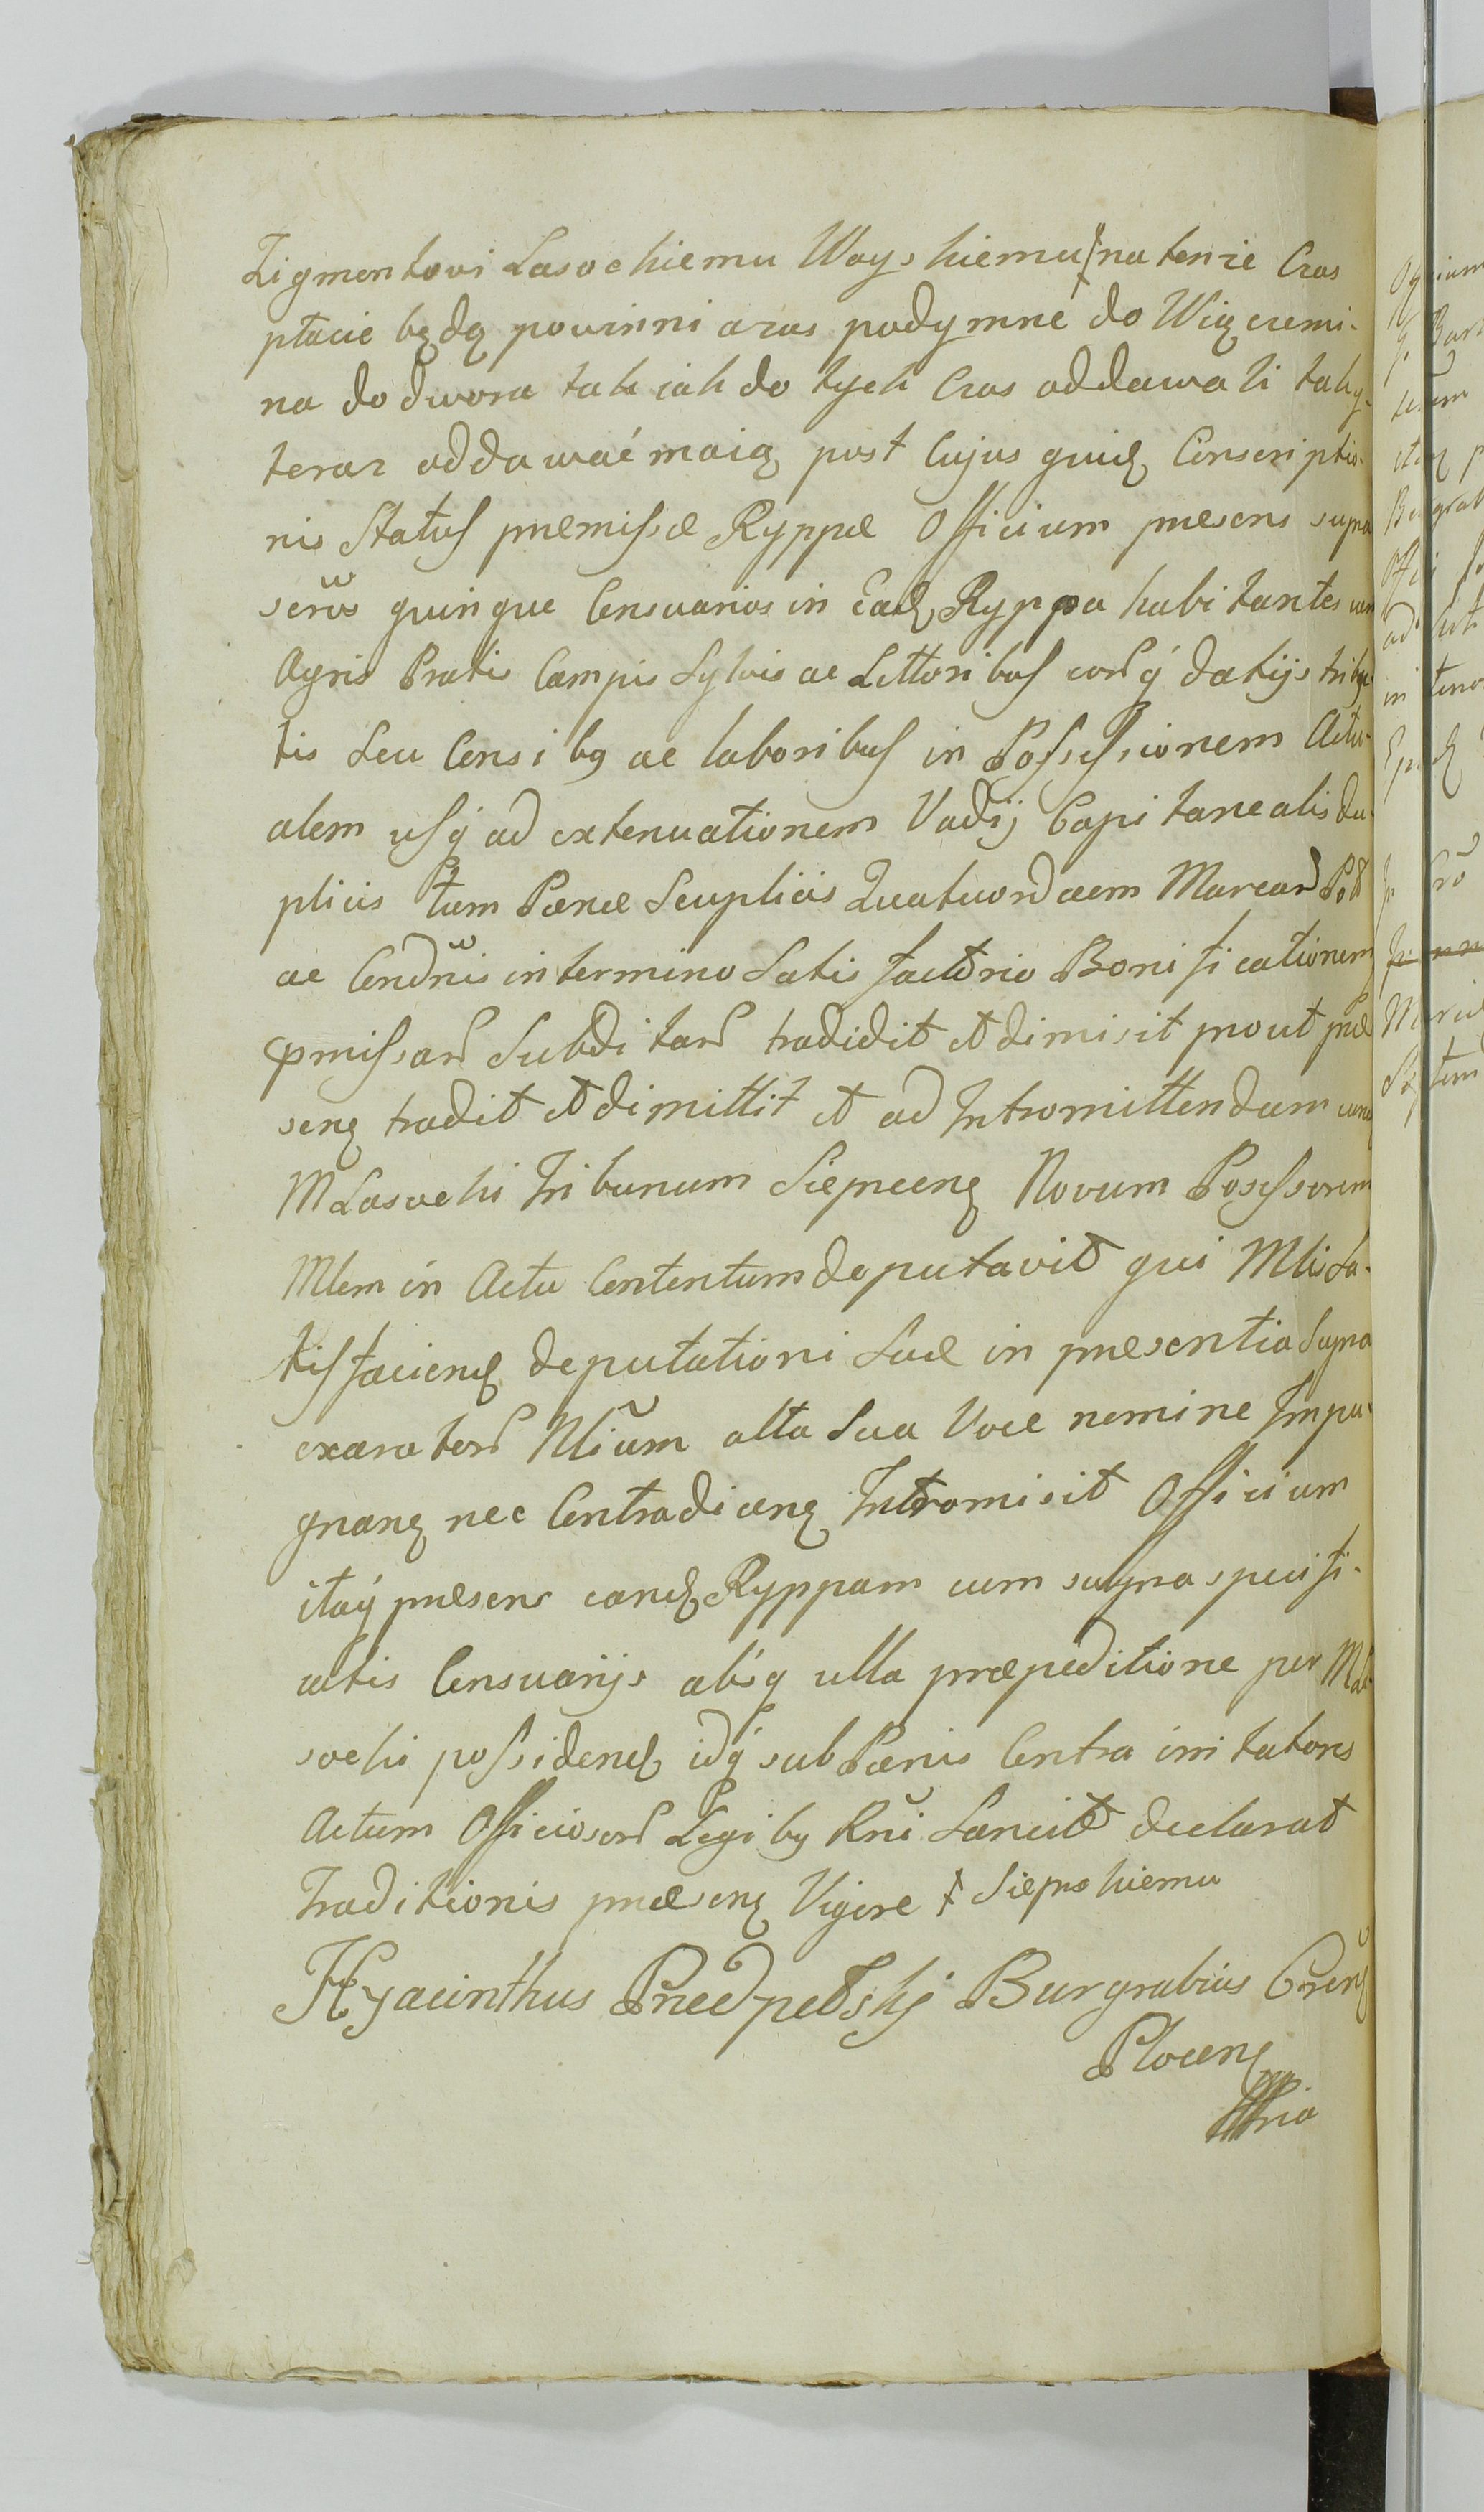 Zigmontowi Lasockiemu Woyskiemu ⸸ na tenże Czas
płacić będą powinni a zas podymne do Więczemi-
na do dwora tak iak do tych Czas oddawali taky
teraz oddawać maią post Cujus quid Conscriptio-
nis Status præmissæ Ryppæ Officium præsens supra
scrõs quinque Censuarios in Ead Ryppa habitantes cum
Agris Pratis Campis Sylvis ac Littoribus eorq datijs tribu
tis Seu Censibg ac laboribus in Possessionem Actu-
alem usq ad extenuationem Vadij Capitanealis du-
plicis tum Pænæ Scuplicis Quatuordecem Marcar Pol
ac Condnis in termino Satisfactorio Bonificationem
pmissar Subditar tradidit et dimisit prout præ
senz tradit et dimittit et ad Intromittendum eund
M Lasocki Tribunum Siepcenz Novum Possessorem
Mlem in Actu Contentum deputavit qui Mlis Sa-
tisfaciend deputationi Suæ in præsentia Supra
exarator Nlium alta Sua Voce nemine Impu-
gnanz nec Contradicenz Intromisit Officium
itaq præsens eand Ryppam cum supra specifi-
catis Censuarijs absq ulla præpeditione per M La
socki possidend idq sub Pænis Contra irritatores
Actum Officiosor Legibg Rni Sancit declarat
Traditionis præsenz Vigore ⸸ Siepskiemu
Hyacinthus Przedpełskj Burgrabius Cren
Plocenz